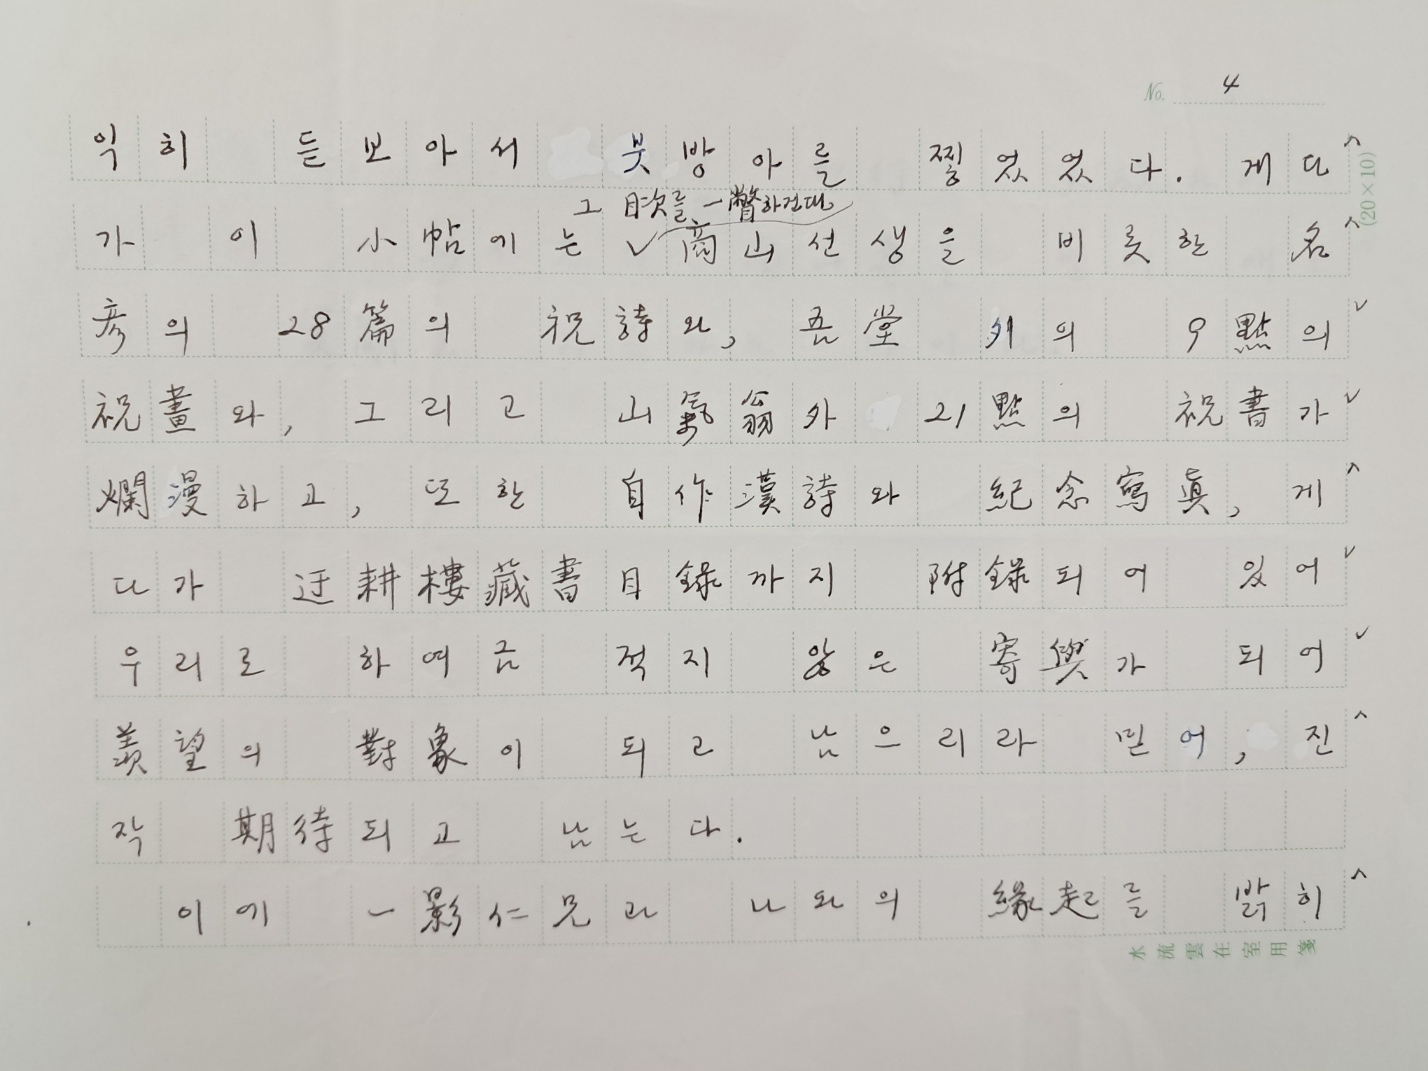 No. 4
익히 듣보아서 붓방아를 찧었었다. 게다
그 目次를 一瞥하건대
가 이 小帖에는 商山선생을 비롯한 名
彦의 28篇의 祝詩와, 吾堂 外의 9點의
祝畫와, 그리고 山氣翁外 21點의 祝書가
爛漫하고, 또한 自作漢詩와 紀念寫眞, 게
다가 迂耕樓藏書目錄까지 附錄되어 있어
우리로 하여금 적지 않은 寄與가 되어
羨望의 對象이 되고 남으리라 믿어, 진
작 期待되고 남는다.
이에 一影仁兄과 나와의 緣起를 밝히
(20×10)
水流雲在室用箋